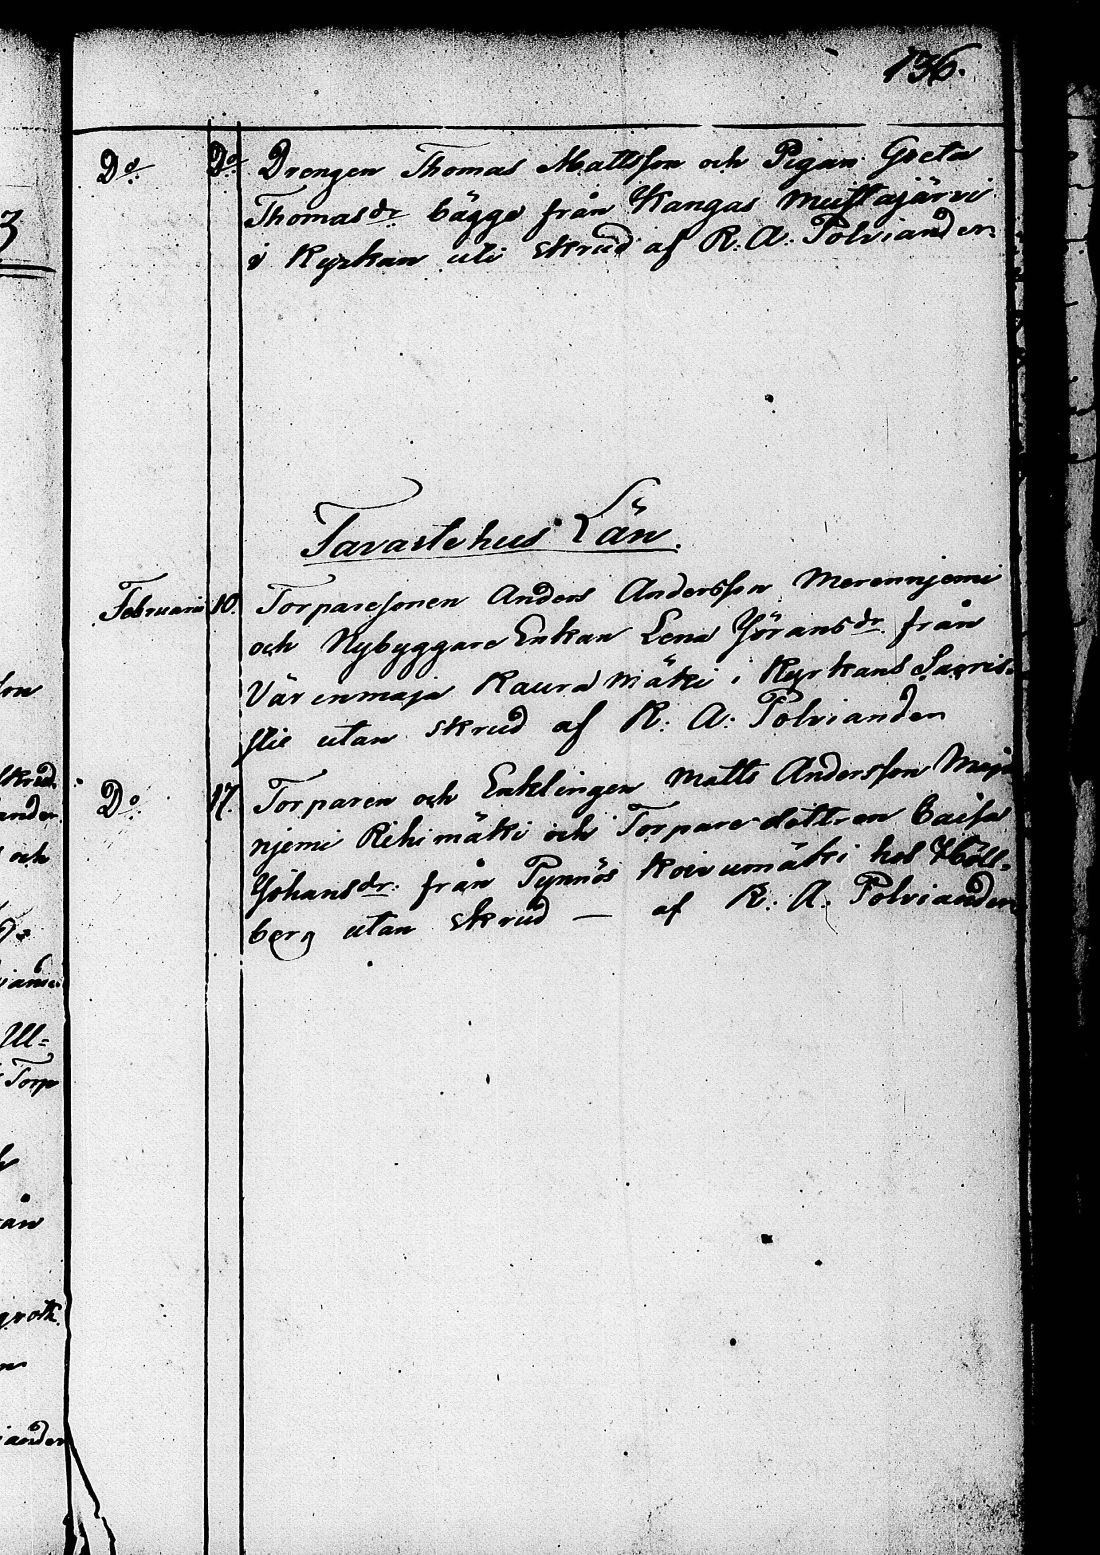 136.
Do Do Drengen Thomas Mattsson och Pigan Greta
Thomasdr bägge från Kangas Mustajärvi
i Kyrkan uti skrud af R. A. Polviander
Tavastehus Län.
Februari 10. Torparesonen Anders Andersson Merennjemi
och Nybyggare Enkan Lena Jöransdr från
Värenmaja Kauramäki i Kyrkans Sacris-
stie utan skrud af R. A. Polviander
Do 17. Torparen och Enklingen Matts Andersson
njemi Rihimäki och Torpare dottren Caisa
Johansdr. från Pynnös Koivumäki hos Höll-
berg utan skrud — af R. A. Polviander